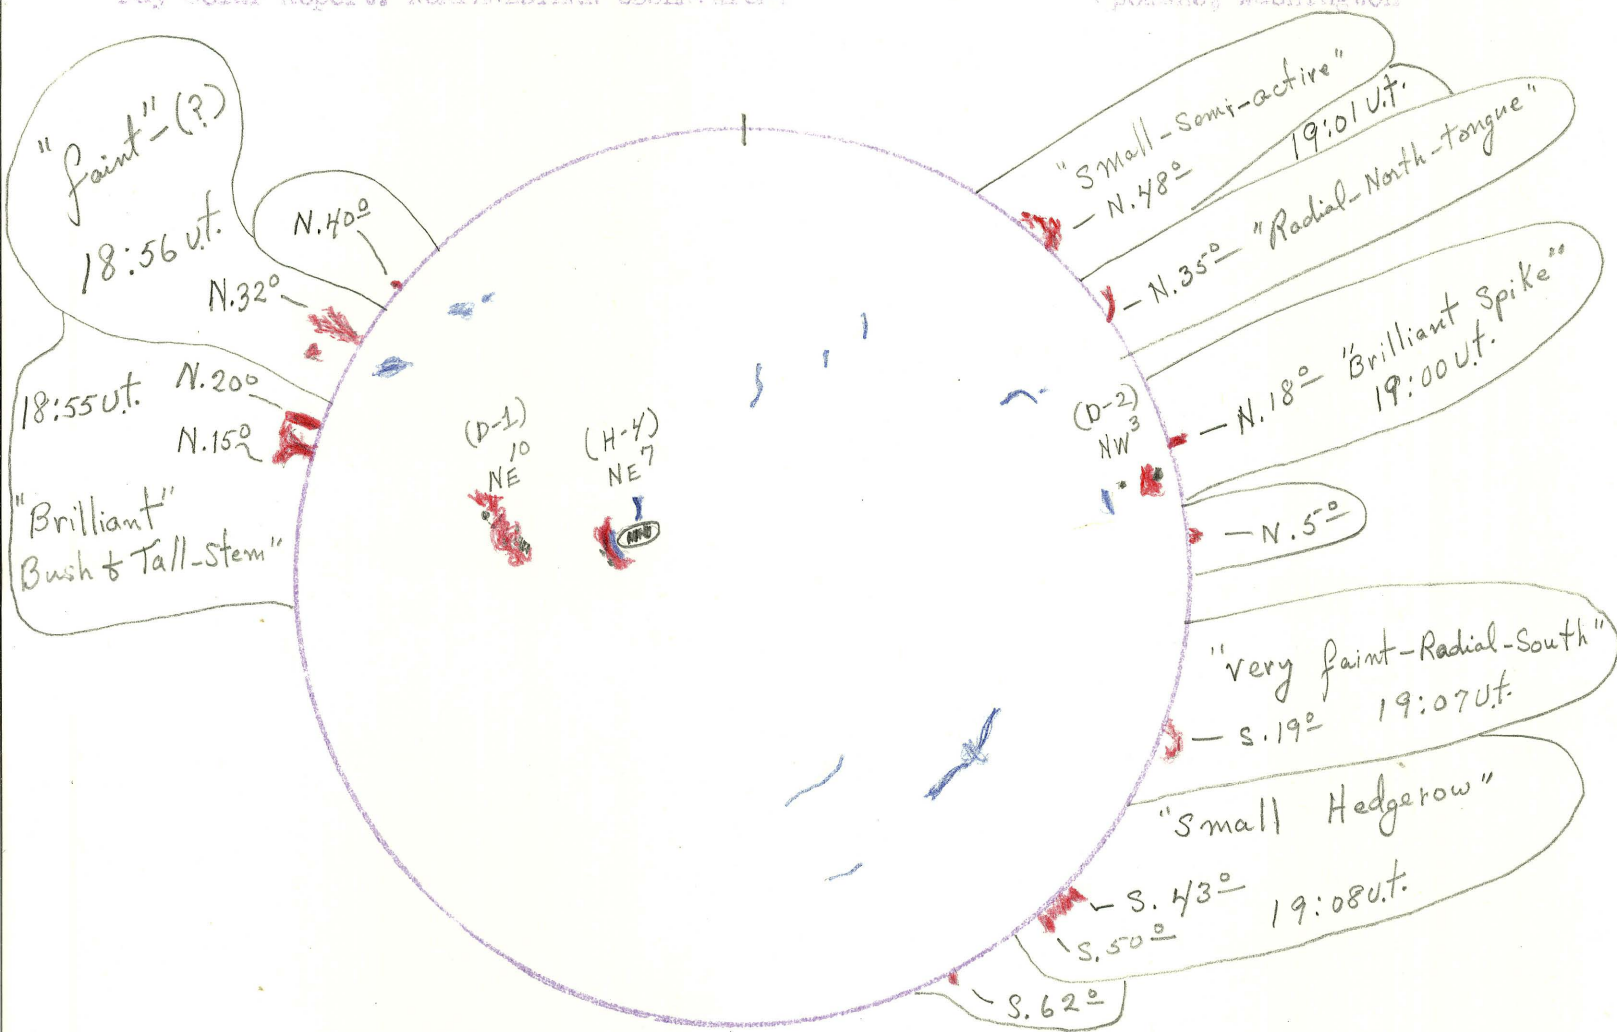 "faint"-(?)
18:56 u.t.
N.40º
N.32º
18:55 u.t. N.20º
N.15º
"Brilliant"
Bush & Tall-Stem"
(D-1)
10
NE
(H-4)
NE7
(D-2)
NW3
"Small-Semi-active"
N.48º 19:01 U.t.
N.35º "Radial-North-tongue"
N.18º "Brilliant Spike"
19:00 U.t.
N.5º
"very faint-Radial-South"
S.19º 19:07 U.t.
"Small Hedgerow"
S.43º 19:08 U.t.
S.50º
S.62º